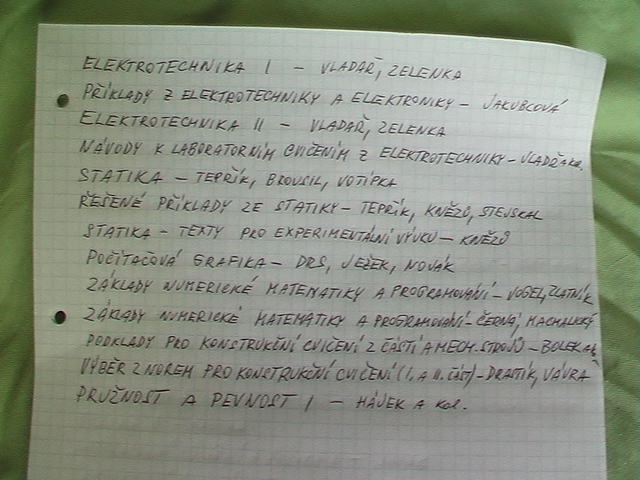 ELEKTROTECHNIKA I – VLADAŘ, ZELENKA
PŘÍKLADY Z ELEKTROTECHNIKY A ELEKTRONIKY – JAKUBCOVÁ
ELEKTROTECHNIKA II – VLADAŘ, ZELENKA
NÁVODY K LABORATORNÍM CVIČENÍM Z ELEKTROTECHNIKY – VLADAŘ A KOL.
STATIKA – TEPŘÍK, BROUSIL, VOTÍPKA
ŘEŠENÉ PŘÍKLADY ZE STATIKY – TEPŘÍK, KNĚZŮ, STEJSKAL
STATIKA – TEXTY PRO EXPERIMENTÁLNÍ VÝUKU – KNĚZŮ
POČÍTAČOVÁ GRAFIKA – DRS, JEŽEK, NOVÁK
ZÁKLADY NUMERICKÉ MATEMATIKY A PROGRAMOVÁNÍ – VOGEL, ZLATNÍK
ZÁKLADY NUMERICKÉ MATEMATIKY A PROGRAMOVÁNÍ – ČERNÁ, MACHALICKÝ
PODKLADY PRO KONSTRUKČNÍ CVIČENÍ Z ČÁSTÍ A MECH. STROJŮ –
VÝBĚR Z NOREM PRO KONSTRUKČNÍ CVIČENÍ (I. A II. ČÁST) – DRASTÍK, VÁVRA
PRUŽNOST A PEVNOST I – HÁJEK A KOL.